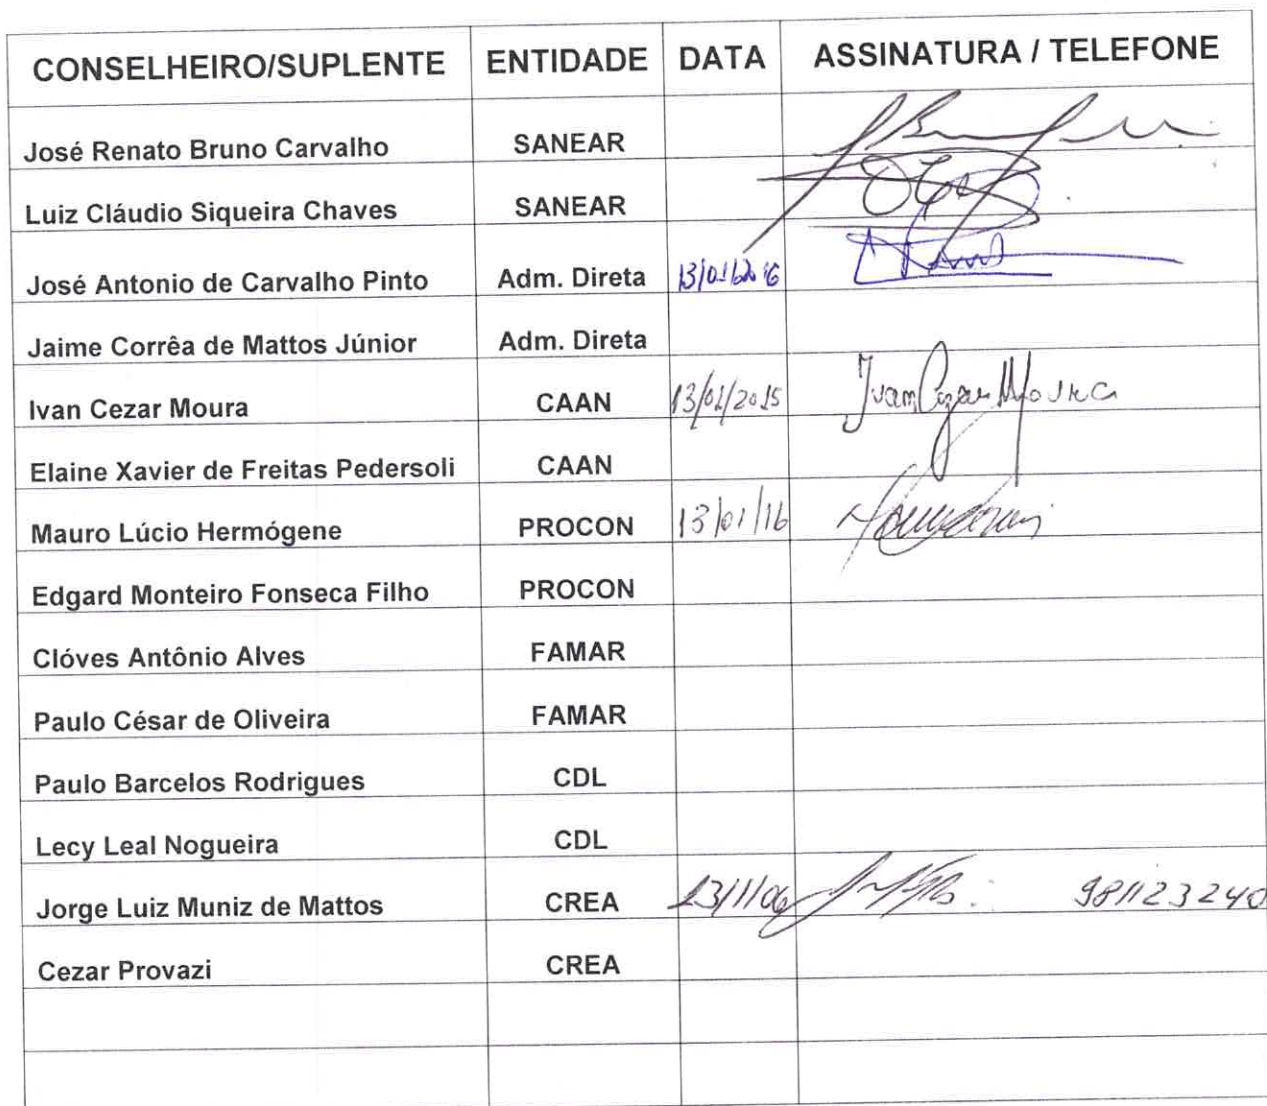 CONSELHEIRO/SUPLENTE ENTIDADE DATA ASSINATURA / TELEFONE
José Renato Bruno Carvalho SANEAR
Luiz Cláudio Siqueira Chaves SANEAR
José Antonio de Carvalho Pinto Adm. Direta 13/01/2016
Jaime Corrêa de Mattos Júnior Adm. Direta
Ivan Cezar Moura CAAN 13/01/2015 Ivan Cezar Moura
Elaine Xavier de Freitas Pedersoli CAAN
Mauro Lúcio Hermógene PROCON 13/01/16
Edgard Monteiro Fonseca Filho PROCON
Clóves Antônio Alves FAMAR
Paulo César de Oliveira FAMAR
Paulo Barcelos Rodrigues CDL
Lecy Leal Nogueira CDL
Jorge Luiz Muniz de Mattos CREA 13/1/06 981123240
Cezar Provazi CREA